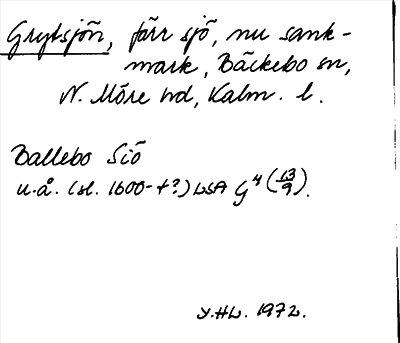 Grytsjön, förr sjö, nu sank-
mark, Bäckebo sn,
N. Möre hd, Kalm. l.
Ballebo Siö
u.å. (sl. 1600-t?) LSA G4 (13/9).
Y.HL. 1972.